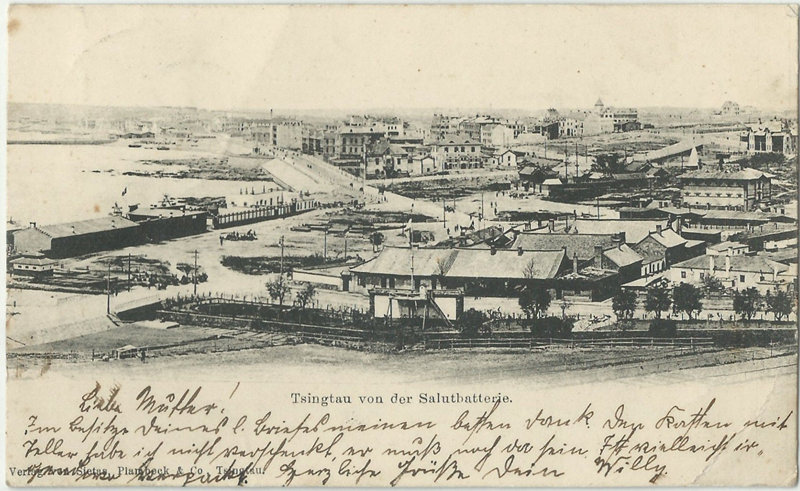 Tsingtau von der Salutbatterie.
Liebe Mutter!
Im Besitze Deines l. Briefes meinen besten Dank. Den Kasten mit
Teller habe ich nicht verschenkt, er muß noch da sein. Ist vielleicht ir=
Verlag von Sietas, Plambeck & Co, Tsingtau.
verpackt. Herzliche Grüße Dein Willy.